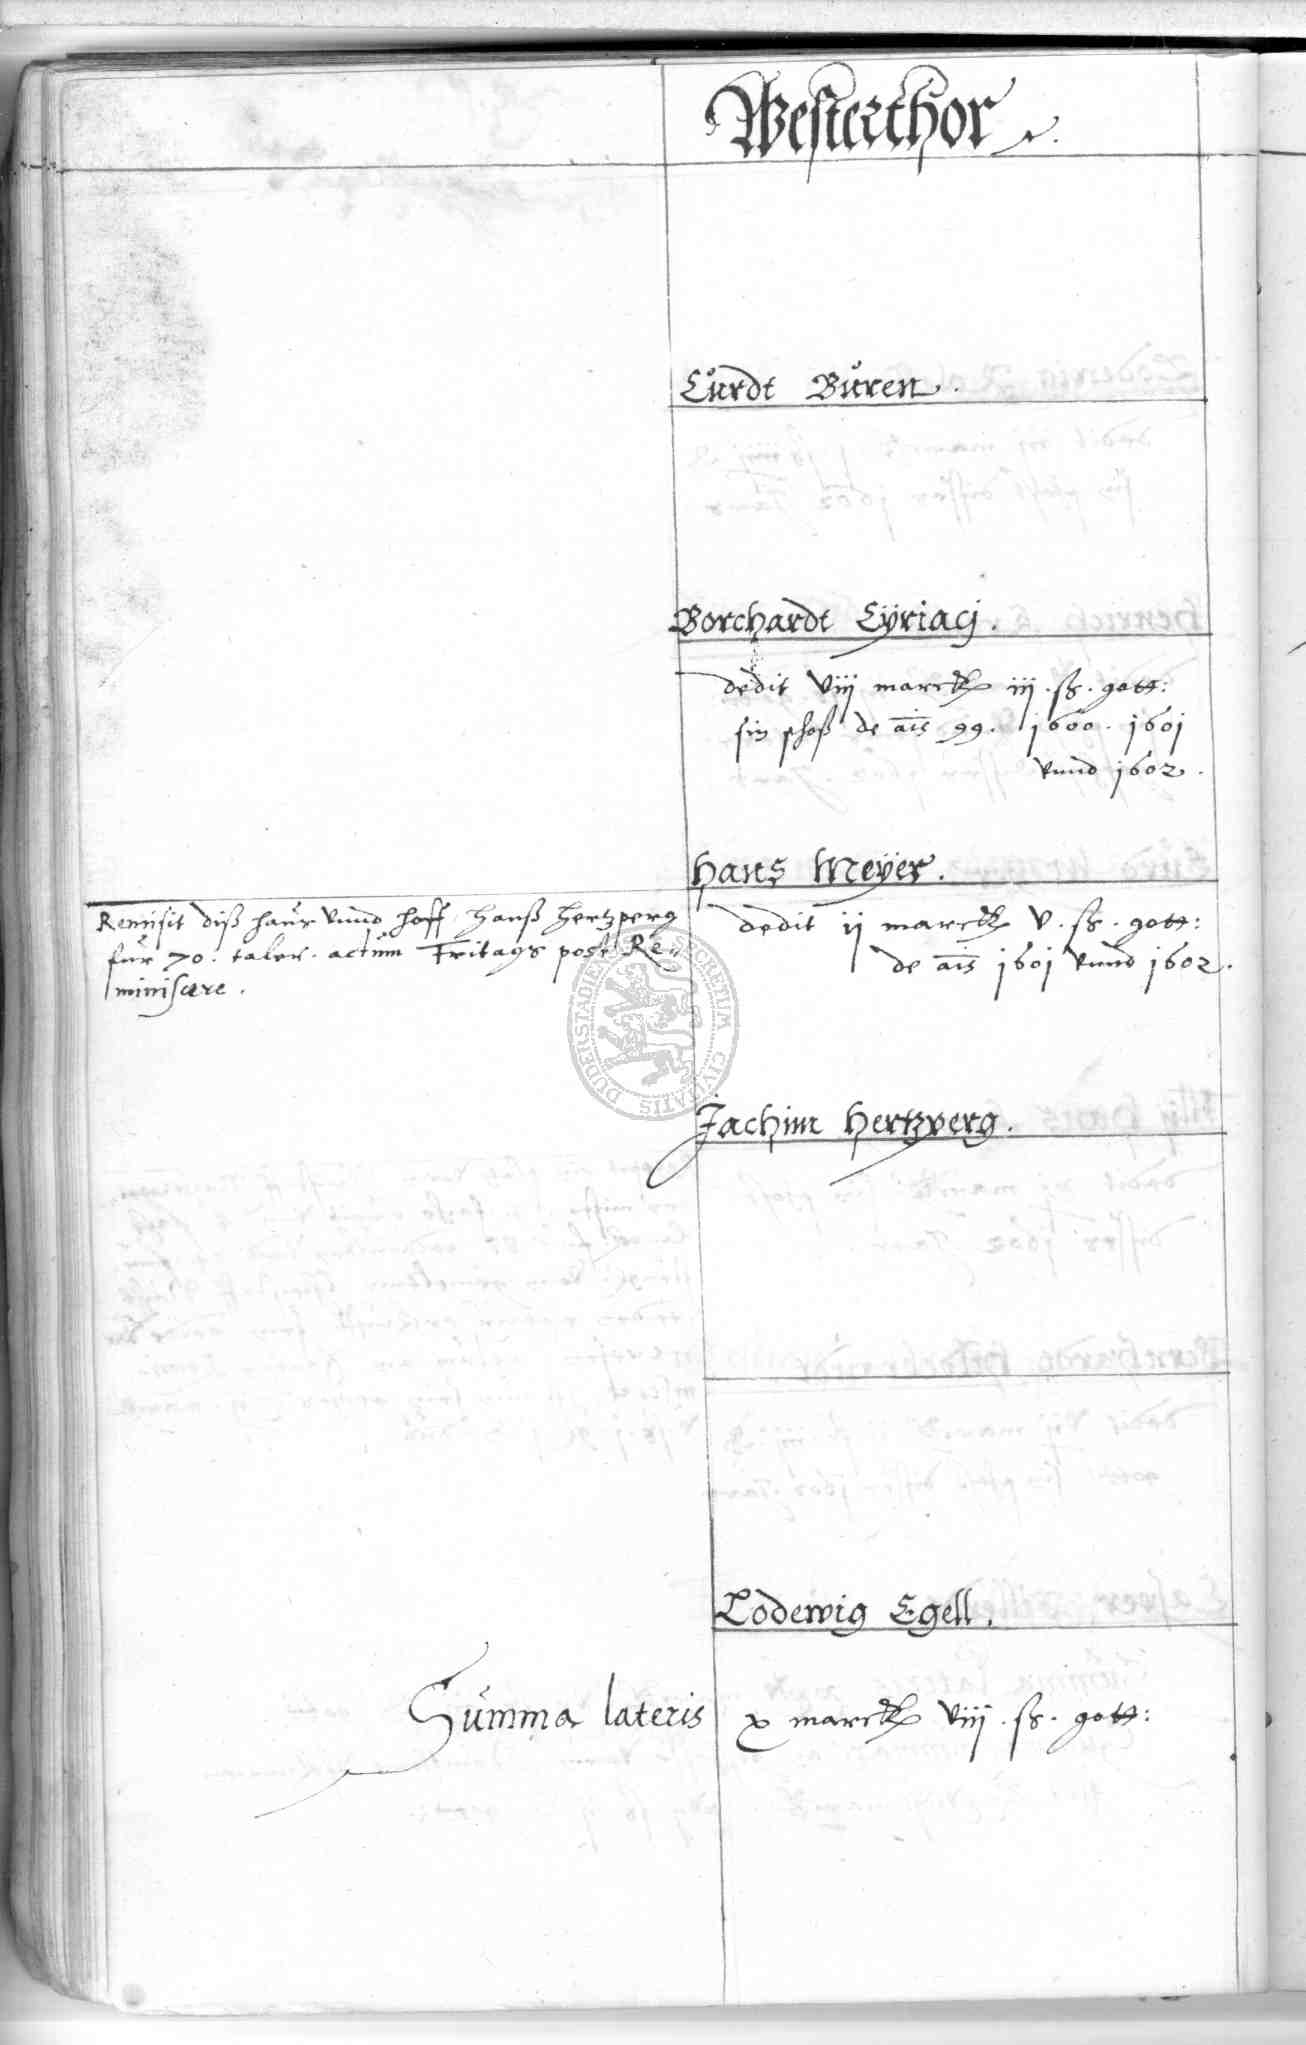 Westerthor
Curdt Buren.
Borchardt Cÿriacj.
dedit viij marck iij. ß. gott:
sin schoß de ais 99. 1600. 1601
vnnd 1602.
Hans Meÿer.
Remisit diß hauß vnnd hoff Hanß Hertzperg
fur 70. taler. actum Fritags post Re-
miniscere.
dedit ij marck v. ß. gott:
de ais 1601 vnnd 1602.
Jachim Hertzperg.
Lodewig Egell.
Summa lateris x marck viij. ß. gott:
SECRETUM CIVITATIS DUDERSTADE